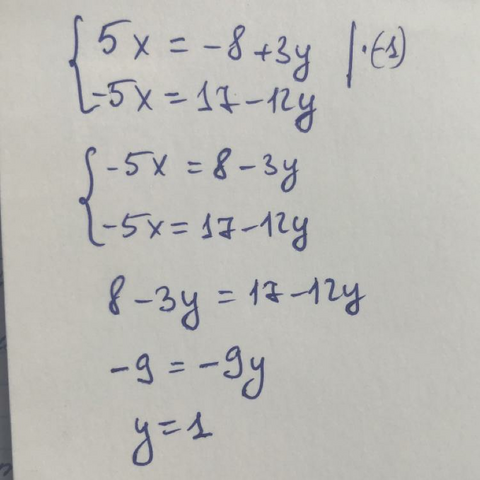 5x = -8 + 3y | · (-1)
-5x = 17 - 12y
-5x = 8 - 3y
-5x = 17 - 12y
8 - 3y = 17 - 12y
-9 = -9y
y = 1